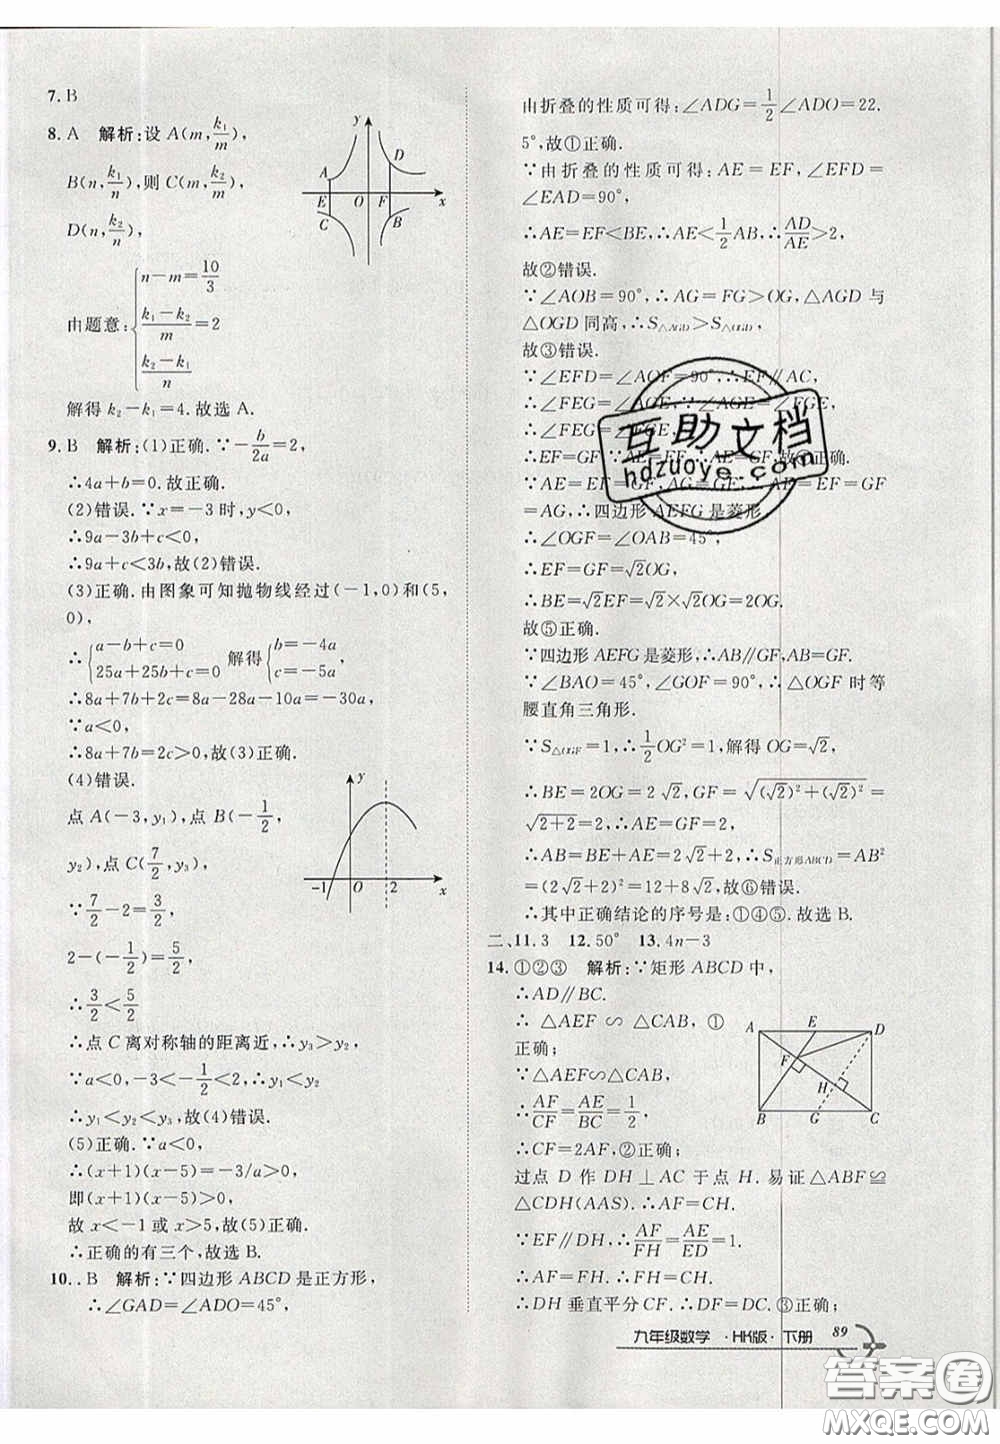 7. B
8. A 解析:设 A(m, k₁/m),
B(n, k₁/n),则 C(m, k₂/m),
D(n, k₂/n),
由题意:{n−m=10/3
(k₁−k₂)/m=2
(k₂−k₁)/n
解得 k₂−k₁=4.故选 A.
y
D
A
E O F x
C B
9. B 解析:(1)正确.∵−b/2a=2,
∴4a+b=0.故正确.
(2)错误.∵x=−3时,y<0,
∴9a−3b+c<0,
∴9a+c<3b,故(2)错误.
(3)正确.由图象可知抛物线经过(−1,0)和(5,
0),
∴{a−b+c=0 25a+25b+c=0 解得{b=−4a c=−5a,
∴8a+7b+2c=8a−28a−10a=−30a,
∵a<0,
∴8a+7b+2c>0,故(3)正确.
(4)错误.
点 A(−3,y₁),点 B(−1/2,
y₂),点 C(7/2,y₃),
∵7/2−2=3/2,
2−(−1/2)=5/2,
∴3/2<5/2
y
−1 O 2 x
∴点 C 离对称轴的距离近,∴y₃>y₂,
∵a<0,−3<−1/2<2,∴y₁<y₂,
∴y₁<y₂<y₃,故(4)错误.
(5)正确.∵a<0,
∴(x+1)(x−5)=−3/a>0,
即(x+1)(x−5)>0,
故 x<−1 或 x>5,故(5)正确.
∴正确的有三个,故选 B.
10. . B 解析:∵四边形 ABCD 是正方形,
∴∠GAD=∠ADO=45°,
由折叠的性质可得:∠ADG=1/2∠ADO=22.
5°,故①正确.
∵由折叠的性质可得:AE=EF,∠EFD=
∠EAD=90°,
∴AE=EF<BE,∴AE<1/2AB,∴AD/AE>2,
故②错误.
∵∠AOB=90°,∴AG=FG>OG,△AGD 与
△OGD 同高,∴S△AGD>S△OGD,
故③错误.
∵∠EFD=∠AOF=90°,∴EF∥AC,
∴∠FEG=∠AGE,∵∠AGE=∠FGE,
∴∠FEG=∠FGE,
∴EF=GF,∵AE=EF,∴AE=GF,故④正确.
∵AE=EF=GF,AG=GF,∴AE=EF=GF
=AG,∴四边形 AEFG 是菱形,
∴∠OGF=∠OAB=45°,
∴EF=GF=√2OG,
∴BE=√2EF=√2×√2OG=2OG.
故⑤正确.
∵四边形 AEFG 是菱形,∴AB∥GF,AB=GF.
∵∠BAO=45°,∠GOF=90°,∴△OGF 时等
腰直角三角形.
∵S△OGF=1,∴1/2OG²=1,解得 OG=√2,
∴BE=2OG=2√2,GF=√((√2)²+(√2)²)=
√(2+2)=2,∴AE=GF=2,
∴AB=BE+AE=2√2+2,∴S正方形ABCD=AB²
=(2√2+2)²=12+8√2,故⑥错误.
∴其中正确结论的序号是:①④⑤.故选 B.
二、11. 3 12. 50° 13. 4n−3
14. ①②③ 解析:∵矩形 ABCD 中,
∴AD∥BC.
∴△AEF∽△CAB,①
正确;
∵△AEF∽△CAB,
∴AF/CF=AE/BC=1/2,
∴CF=2AF,②正确;
A E D
F
H
B G C
过点 D 作 DH⊥AC 于点 H.易证△ABF≌
△CDH(AAS).∴AF=CH.
∵EF∥DH,∴AF/FH=AE/ED=1.
∴AF=FH.∴FH=CH.
∴DH 垂直平分 CF.∴DF=DC.③正确;
九年级数学·HK版·下册 89
互助文档
hdzuoye.com
答案圈
MXQE.COM